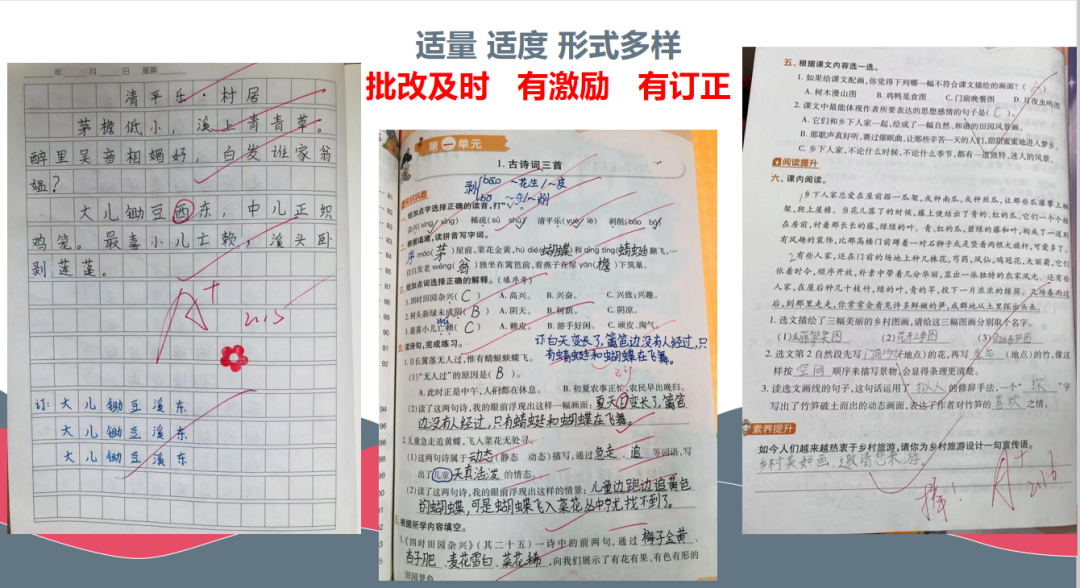 适量 适度 形式多样
批改及时 有激励 有订正
年 月 日 星期
清平乐·村居
茅檐低小，溪上青青草。
醉里吴音相媚好，白发谁家翁
媪？
大儿锄豆西东，中儿正织
鸡笼。最喜小儿亡赖，溪头卧
剥莲蓬。
A+
订:大儿锄豆溪东
大儿锄豆溪东
大儿锄豆溪东
第一单元
1.古诗词三首
剥 bāo ~花生/~皮
bō ~夺/~削
一、给加点字选择正确的读音,打“√”。
杂兴(xīng xìng) 稀疏(sū shū) 清平乐(yuè lè) 剥削(bāo bō)
二、根据语境,读拼音写字词。
(茅)屋前,菜花金黄,hú dié(蝴蝶)和qīng tíng(蜻蜓)翻飞,一
位白发老wēng(翁)独坐在篱笆前,看燕子在屋yán(檐)下筑巢。
三、给加点词选择正确的解释。(填序号)
1.四时田园杂兴(C) A.高兴。 B.兴奋。 C.兴致;兴趣。
2.树头新绿未成阴(B) A.阴天。 B.树荫。 C.阴凉。
3.最喜小儿亡赖(C) A.赖皮。 B.游手好闲。 C.顽皮、淘气。
订:白天变长了,篱笆边没有人经过,只
有蜻蜓和蝴蝶在飞舞。
四、读诗句,完成练习。
1.日长篱落无人过,惟有蜻蜓蛱蝶飞。
(1)“无人过”的原因是(B)。
A.此时正是中午,人们都在休息。 B.初夏农事正忙,农民早出晚归。
(2)读了这两句诗,我的眼前浮现出这样一幅画面:夏天日变长了,篱笆
边没有人经过,只有蜻蜓和蝴蝶在飞舞。
2.儿童急走追黄蝶,飞入菜花无处寻。
(1)这两句诗属于动态(静态 动态)描写,通过急走、追等词语,写
出了儿童天真活泼的情态。
(2)读了这两句诗,我的眼前浮现出这样的情景:儿童边跑边追黄色
的蝴蝶,可是蝴蝶飞入菜花丛中就找不到了。
五、根据所学内容填空。
1.《四时田园杂兴》(其二十五)一诗中的前两句,通过梅子金黄、
杏子肥、麦花雪白、菜花稀,向我们展示了有花有果、有色有形的
田园景色
五、根据课文内容选一选。
1.如果给课文配画,你觉得下列哪一幅不符合课文描绘的画面?(
A.树木漫山图 B.鸡鸭觅食图 C.门前晚餐图 D.月夜虫鸣图
2.课文中最能体现作者所要表达的思想感情的句子是(C)。
A.它们和乡下人家一起,绘成了一幅自然、和谐的田园风景画。
B.那歌声真好听,赛过催眠曲,让那些辛苦一天的人们,甜甜蜜蜜地进入梦乡。
C.乡下人家,不论什么时候,不论什么季节,都有一道独特、迷人的风景。
阅读提升
六、课内阅读。
1乡下人家总爱在屋前搭一瓜架,或种南瓜,或种丝瓜,让那些瓜藤攀上棚
架,爬上屋檐。当花儿落了的时候,藤上便结出了青的、红的瓜,它们一个个挂
在房前,衬着那长长的藤,绿绿的叶。青、红的瓜,碧绿的藤和叶,构成了一道别
有风趣的装饰,比那高楼门前蹲着一对石狮子或是竖着两根大旗杆,可爱多了。
2有些人家,还在门前的场地上种几株花,芍药,凤仙,鸡冠花,大丽菊,它们
依着时令,顺序开放,朴素中带着几分华丽,显出一派独特的农家风光。还有些
人家,在屋后种几十枝竹,绿的叶,青的竿,投下一片浓浓的绿荫。几场春雨过
后,到那里走走,你常常会看见许多鲜嫩的笋,成群地从土里探出头来。
1.选文描绘了三幅美丽的乡村图画,请给这三幅图画分别取个名字。
2.选文第2自然段先写(地点)的花,再写屋后(地点)的竹,像这
样按空间顺序来描写景物,会显得条理更清楚。
3.读选文画线的句子,这句话运用了拟人的修辞手法,一个“探”字
写出了竹笋破土而出的动态画面,表达了作者对竹笋的喜欢之情。
素养提升
如今人们越来越热衷于乡村旅游,请你为乡村旅游设计一句宣传语。
乡村美如画,邀请您来游。
棒! A+